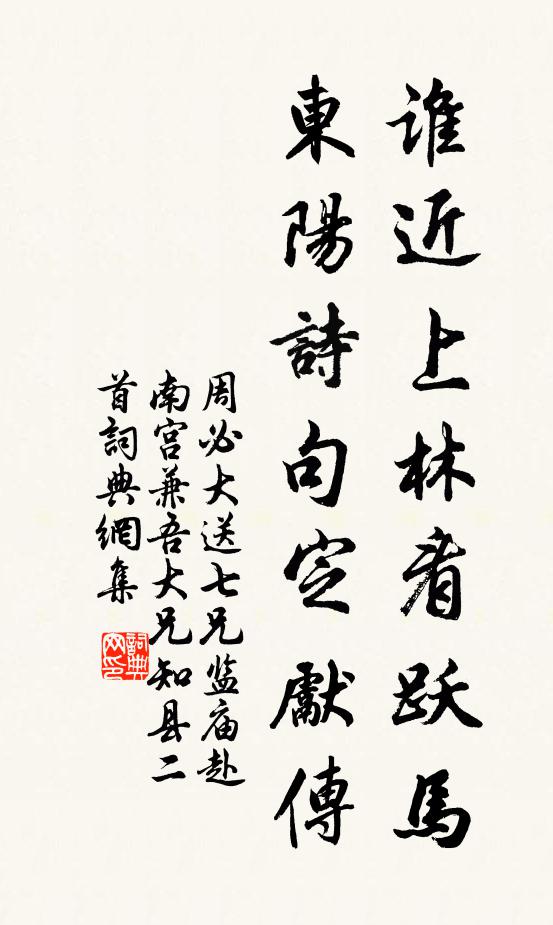 誰近上林看跃馬
東陽詩句定獻傳
周必大送七兄监庙赴
南宫兼吾大兄知县二
首詞典網集
詞典网印